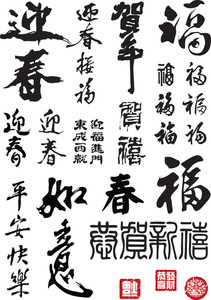 迎春
迎春接福
賀年
福
福福
福福
福福
迎春
迎春
迎福進門
東成西就
賀禧
平安快樂
如意
春
福
恭賀新禧
發財
恭喜